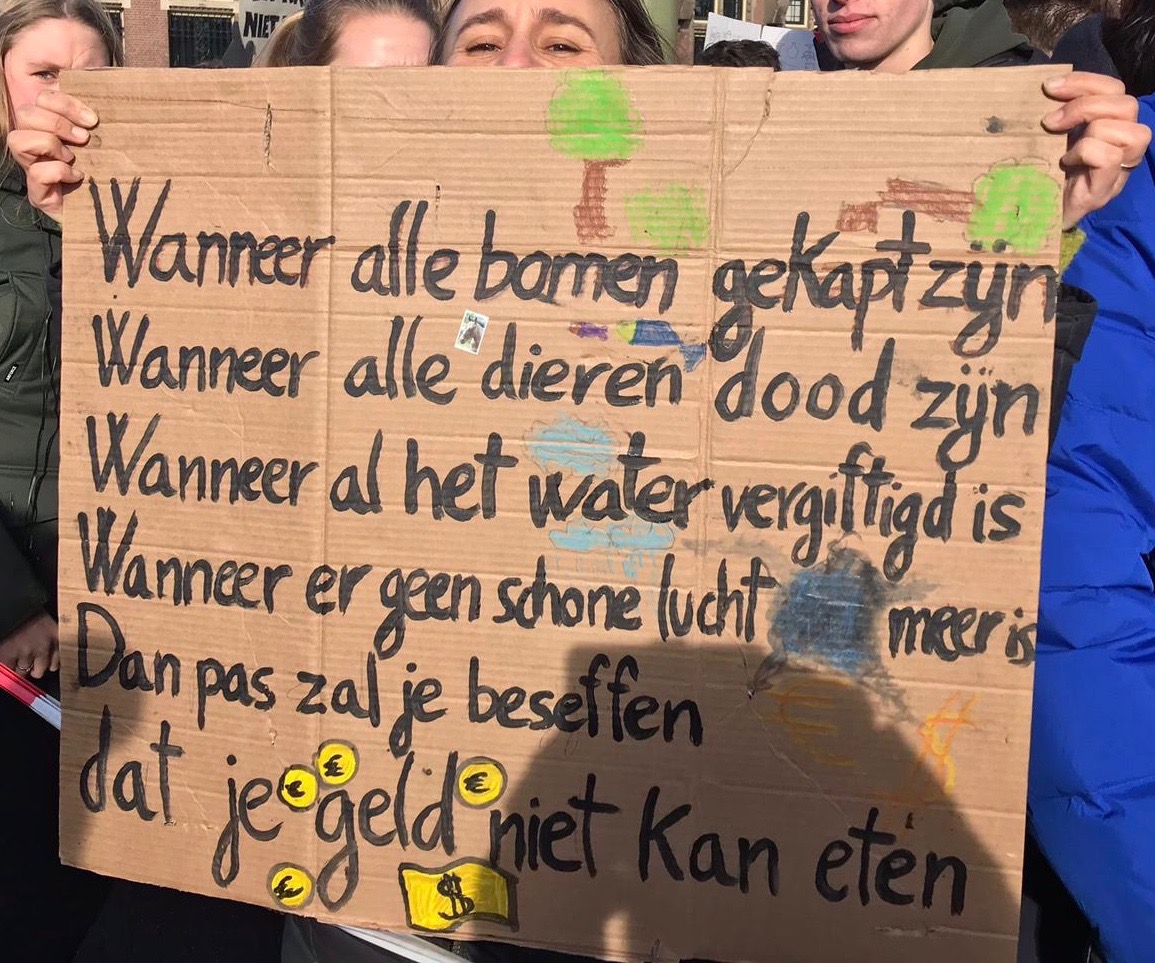 NIET
Wanneer alle bomen gekapt zijn
Wanneer alle dieren dood zijn
Wanneer al het water vergiftigd is
Wanneer er geen schone lucht meer is
Dan pas zal je beseffen
dat je geld niet kan eten
€ € €
€ $